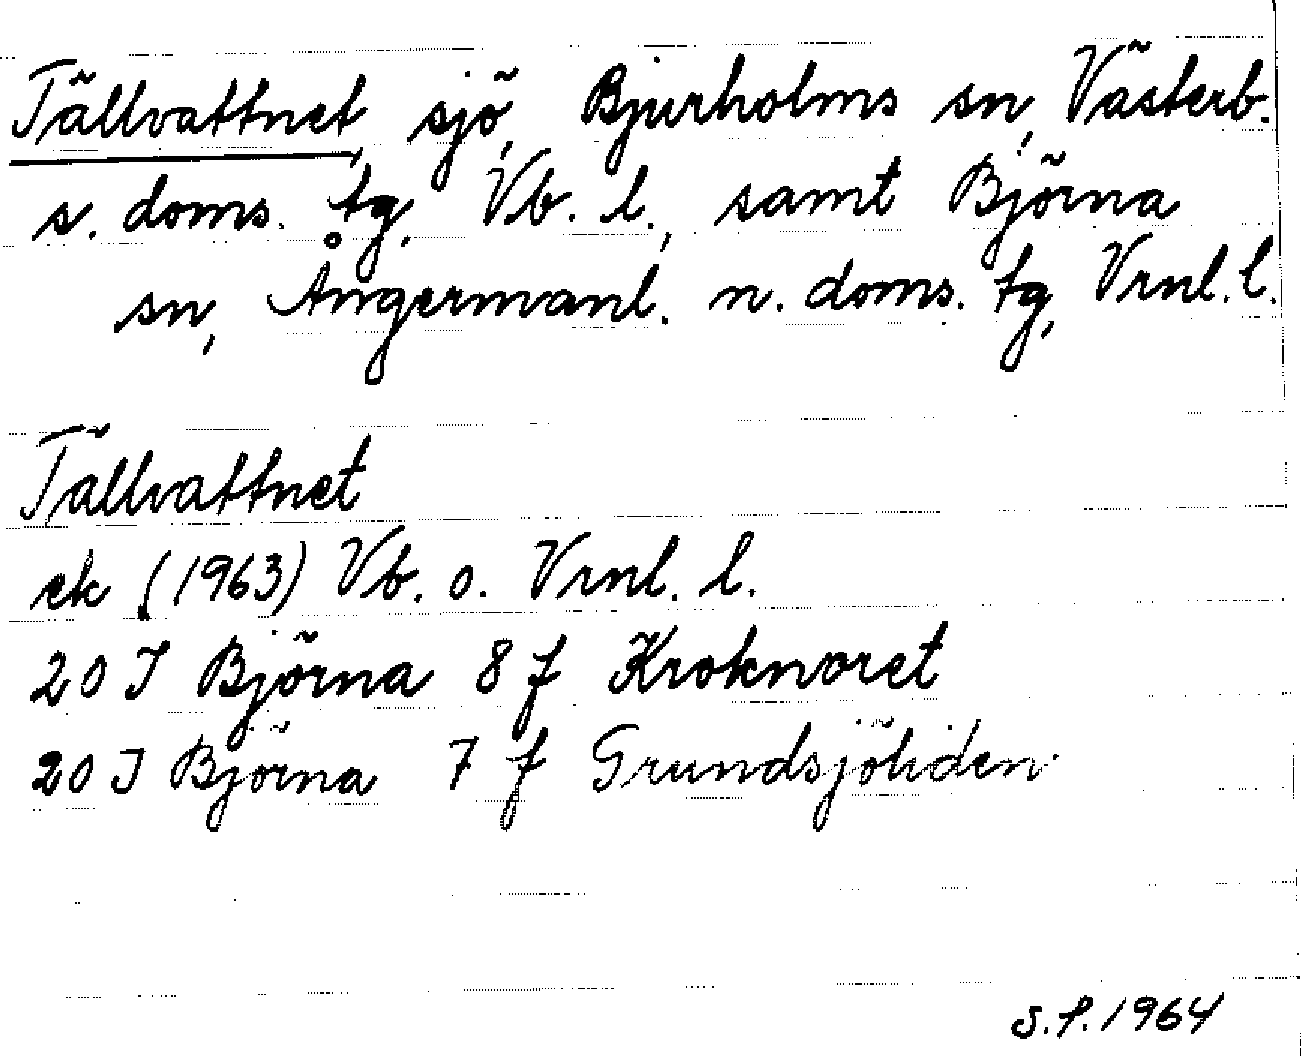 Tällvattnet, sjö, Bjurholms sn, Västerb.
s. doms. tg, Vb. l., samt Björna
sn, Ångermanl. n. doms. tg, Vrnl. l.
Tällvattnet
ek (1963) Vb. o. Vrnl. l.
20 I Björna 8 f Kroknoret
20 I Björna 7 f Grundsjöliden
S.P. 1964